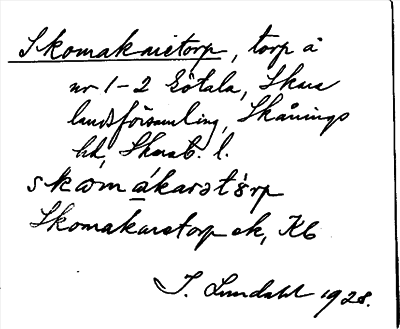 Skomakaretorp, torp å
nr 1-2 Götala, Skara
landsförsamling, Skånings
hd, Skarab. l.
skɷmákarət𐑺rp
Skomakaretorp ek, Kb
I. Lundahl 1928.